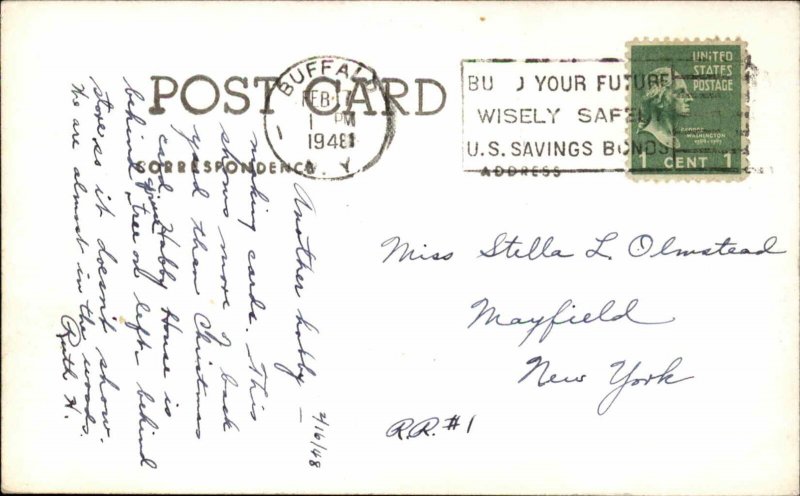 POST CARD
CORRESPONDENCE
ADDRESS
BUFFALO
FEB 17
1 PM
1948
N. Y.
BU D YOUR FUTURE
WISELY SAFELY
U.S. SAVINGS BONDS
UNITED
STATES
POSTAGE
GEORGE
WASHINGTON
1 CENT 1
2/16/48
Another hobby —
making cards. This
shows more of back
yard than Christmas
card. Hobby House is
behind pine tree on left behind
stores it doesn't show.
We are almost in the woods.
Ruth H.
Miss Stella L. Olmstead
Mayfield
New York
R.R. #1